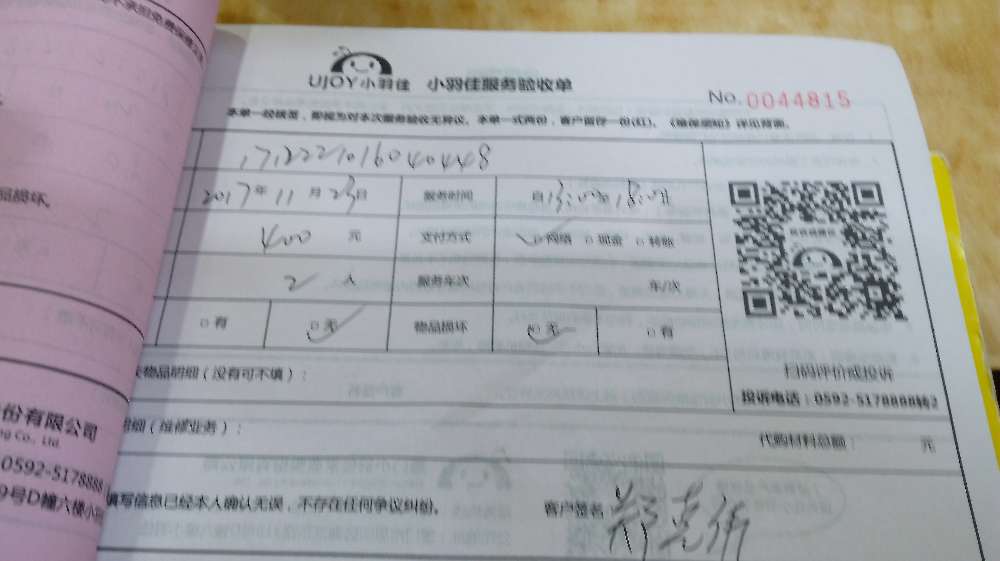 UJOY小羽佳 小羽佳服务验收单
No.0044815
本单一经填写，即视为对本次服务验收无异议。本单一式两份，客户留存一份(红)。《维保须知》详见背面。
2017年11月23日 服务时间 自13:00至18:00止
400 元 支付方式 ☑网络 □现金 □转账
2 人 服务车次 车/次
□有 ☑无 物品损坏 ☑无 □有
物品明细（没有可不填）：
扫码评价或投诉
投诉电话：0592-5178888转2
明细（维修业务）： 代购材料总额： 元
填写信息已经本人确认无误，不存在任何争议纠纷。 客户签名：
品损坏。
份有限公司
ng Co., Ltd.
0592-5178888
9号D幢六楼小羽